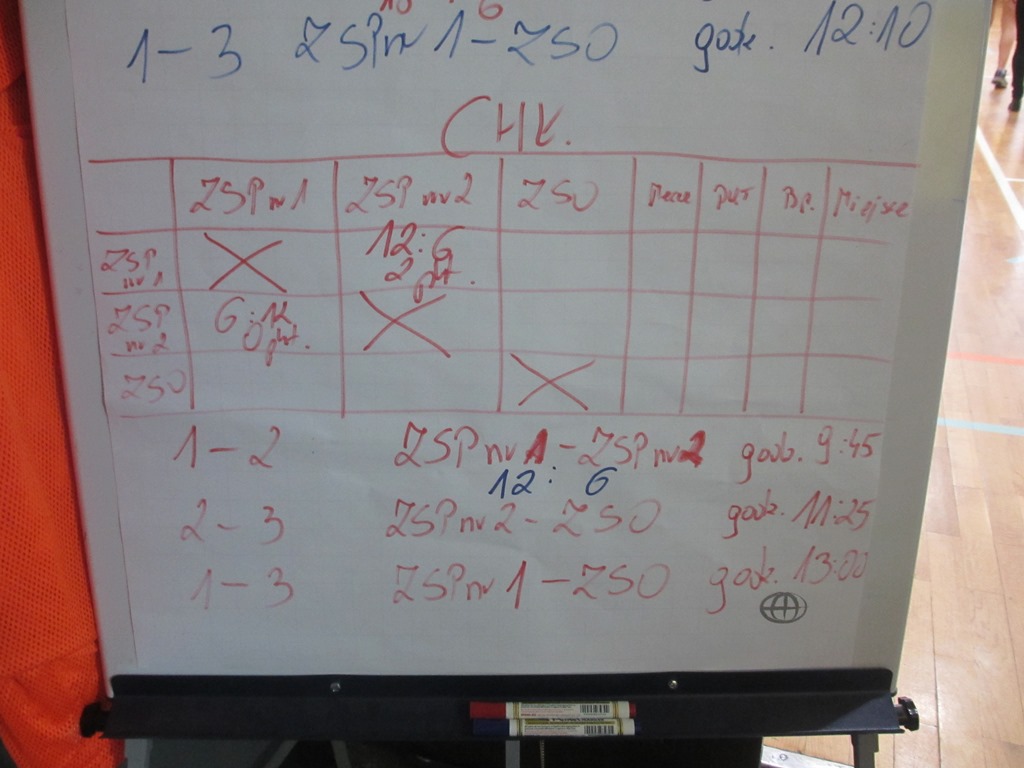 1 - 3 ZSP nr 1 - ZSO godz. 12:10
CHŁ.
ZSP nr 1 ZSP nr 2 ZSO Mecze Pkt Br. Miejsce
ZSP nr 1 12:6 2 pkt.
ZSP nr 2 6:12 0 pkt.
ZSO
1 - 2 ZSP nr 1 - ZSP nr 2 godz. 9:45
12 : 6
2 - 3 ZSP nr 2 - ZSO godz. 11:25
1 - 3 ZSP nr 1 - ZSO godz. 13:00